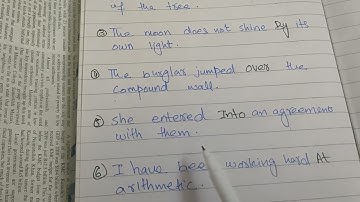 of the tree.
③ The moon does not shine By its
own light.
④ The burglar jumped over the
compound wall.
⑤ she entered Into an agreements
with them.
⑥ I have been working hard At
arithmetic.